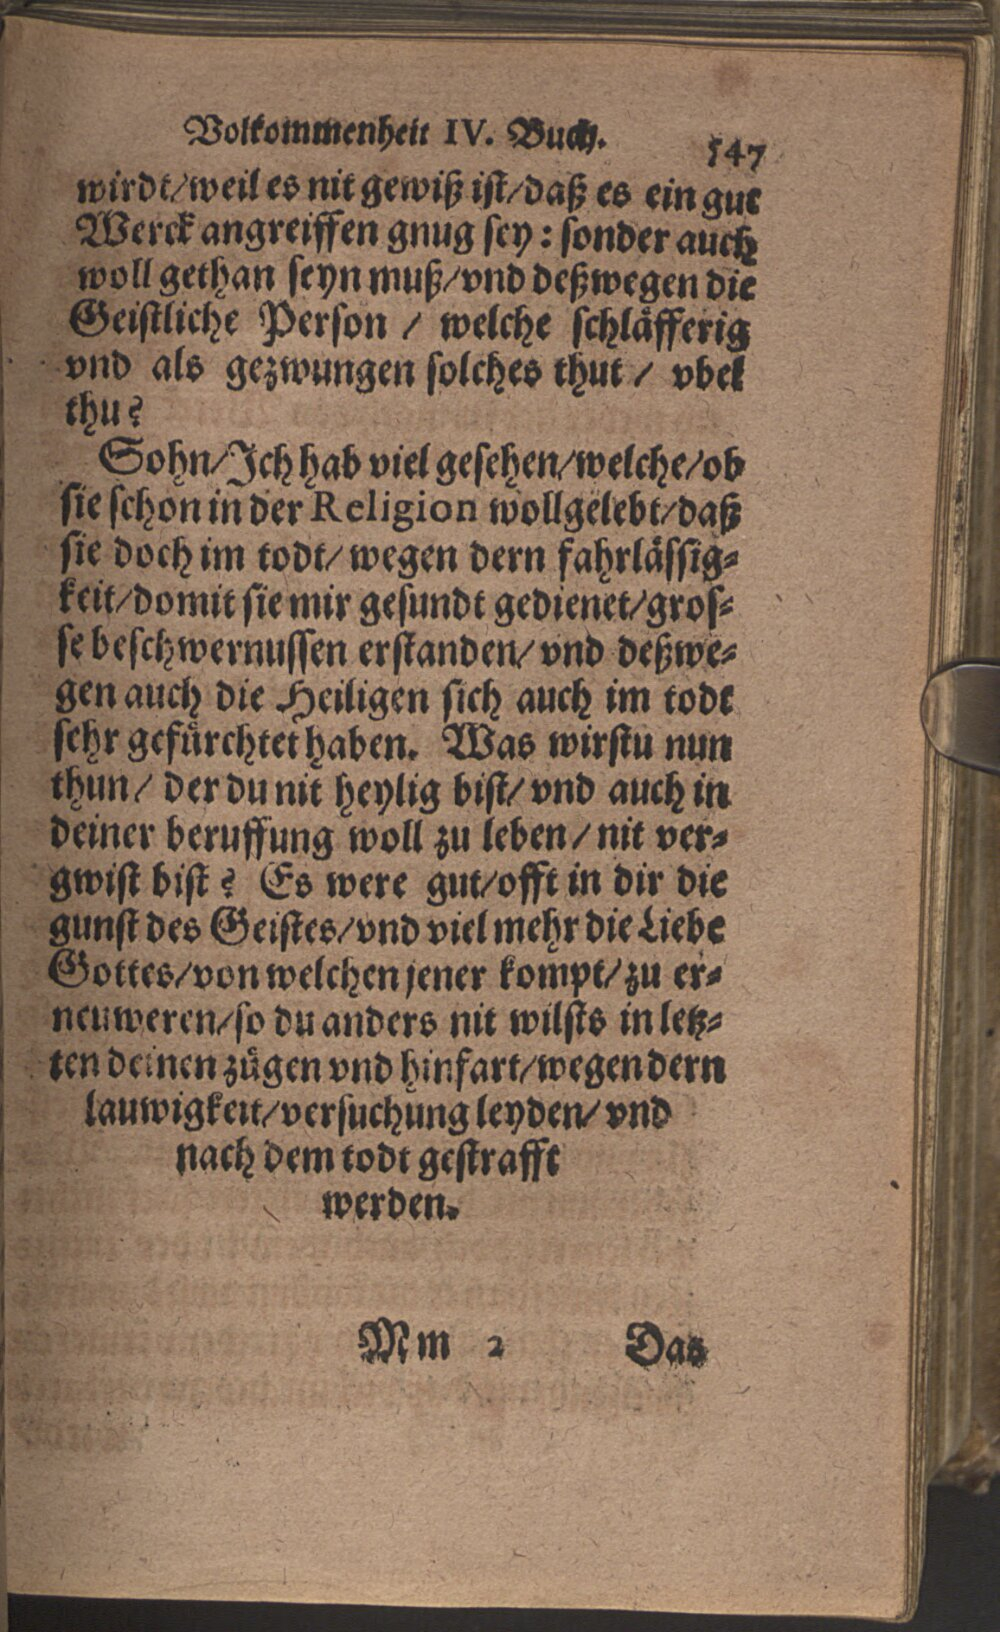 Volkommenheit IV. Buch. 547
wirdt/weil es nit gewiß ist/daß es ein gut
Werck angreiffen gnug sey: sonder auch
woll gethan seyn muß/vnd deßwegen die
Geistliche Person / welche schläfferig
vnd als gezwungen solches thut / vbel
thu?
Sohn/Ich hab viel gesehen/welche/ob
sie schon in der Religion wollgelebt/daß
sie doch im todt/ wegen dern fahrlässig⸗
keit/domit sie mir gesundt gedienet/gros⸗
se beschwernussen erstanden/ vnd deßwe⸗
gen auch die Heiligen sich auch im todt
sehr gefürchtet haben. Was wirstu nun
thun/ der du nit heylig bist/ vnd auch in
deiner beruffung woll zu leben/ nit ver⸗
gwist bist? Es were gut/offt in dir die
gunst des Geistes/vnd viel mehr die Liebe
Gottes/von welchen jener kompt/ zu er⸗
neuweren/so du anders nit wilsts in letz⸗
ten deinen zügen vnd hinfart/wegen dern
lauwigkeit/versuchung leyden/ vnd
nach dem todt gestrafft
werden.
Mm 2 Das